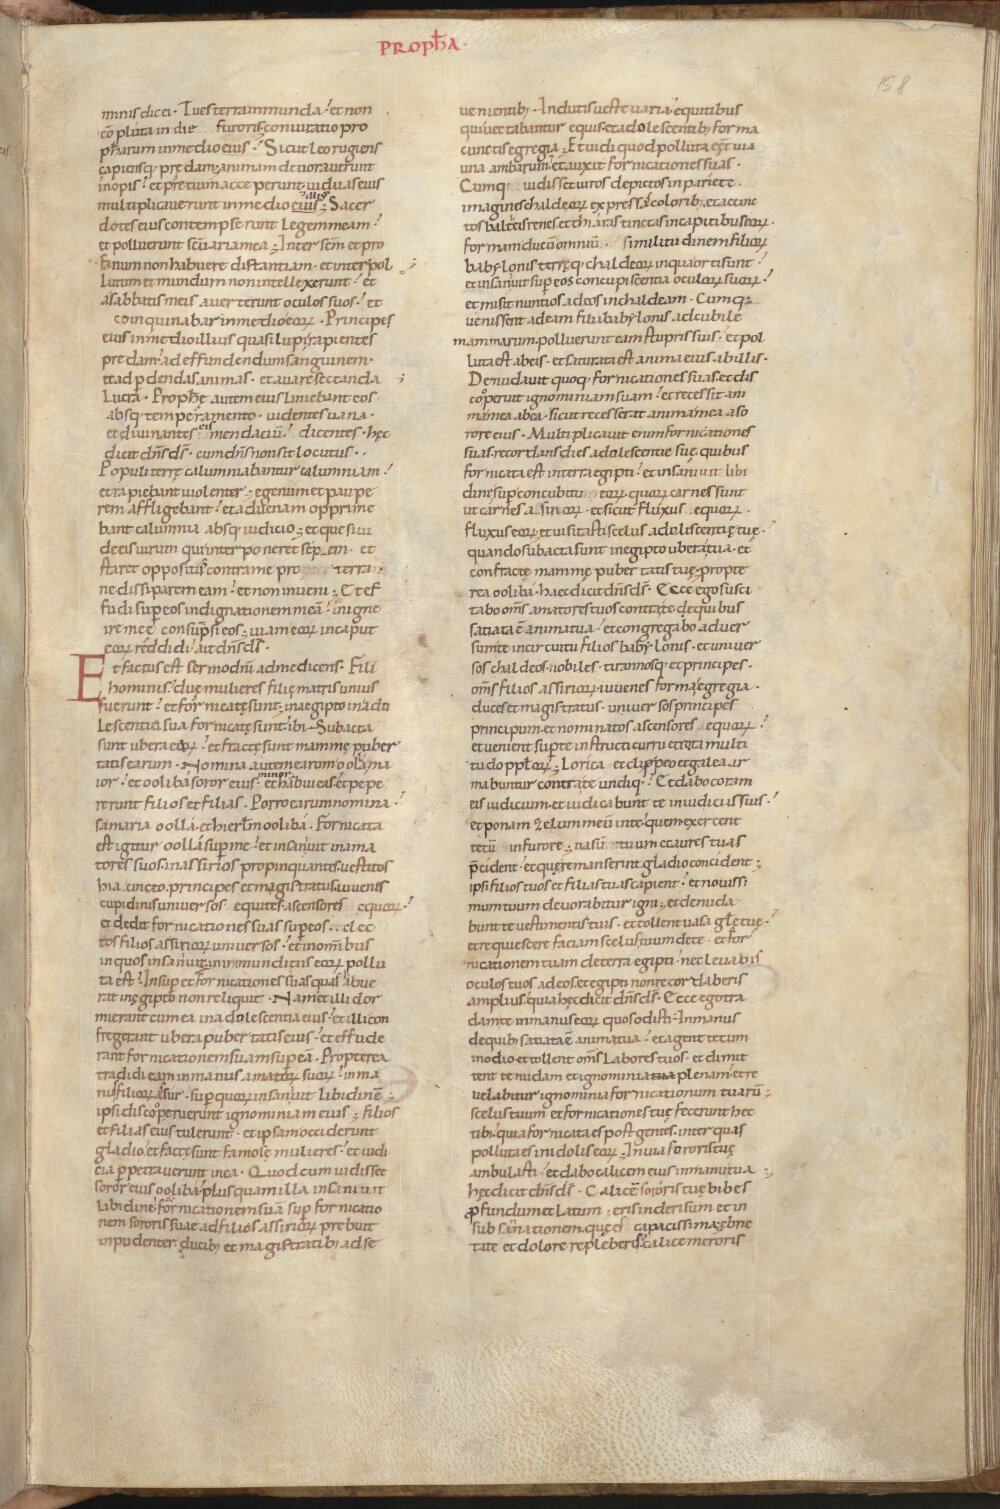 PROPhA·
158
minis dic ei · Tu es terra inmunda ! et non
cōpluta in die furoris · coniuratio pro
pharum in medio eius · Sicut leo rugiens
capiensq; prędam · animam devoraverunt
inopis ! et pretium acceperunt · viduas eius
multiplicaverunt in medio eius · illius Sacer
dotes eius contempserunt Legem meam !
et polluerunt scuaria mea ; Inter scm et pro
fanum non habuere distantiam · et inter pol
lutum et mundum non intellexerunt ! et
a sabbatis meis averterunt oculos suos ! et
coinquinabar in medio eoꝝ · Principes
eius in medio illius quasi lupi rapientes
predam · ad effundendum sanguinem ·
et ad pdendas animas · et avare sectanda
Lucra · Prophę autem eius liniebant eos
absq; temperamento · videntes vana ·
et divinantes eis mendaciū · dicentes · hęc
dicit dns ds · cum dns non sit locutus ·
Populi terrę calumniabantur calumniam !
et rapiebant violenter · egenum et paupe
rem affligebant ! et advenam opprime
bant calumnia absq; iudicio ; et quesivi
de eis virum qui interponeret sepem · et
staret oppositus contra me pro terra
ne dissiparem eam ! et non inveni ; Et ef
fudi super eos indignationem meā ! in igne
ire meę consūpsi eos · viam eoꝝ in caput
eoꝝ reddidi · ait dns ds ·
Et factus est sermo dnī ad me dicens · Fili
hominis · duę mulieres filię matris unius
fuerunt ! et fornicatę sunt · in aegipto in ado
Lescentia sua fornicatę sunt · ibi Subacta
sunt ubera eoꝝ ! et fractę sunt mammę puber
tatis earum · Nomina autem earum oolla ma
ior ! et ooliba soror eius minor · et habui eas · et pepe
rerunt filios et filias · Porro earum nomina !
samaria oolla · et hierlm ooliba · Fornicata
est igitur oolla sup me ! et insanivit in ama
tores suos · in assirios propinquantes · vestitos
hiacincto · principes et magistratus · iuvenes
cupidinis universos equites · ascensores equoꝝ !
et dedit fornicationes suas super eos · elec
tos filios assirioꝝ universos · et in omībus
in quos insanivit · in inmunditiis eoꝝ pollu
ta est ! Insup et fornicationes suas quas habue
rat in ęgipto non reliquit · Nam et illi dor
mierant cum ea in adolescentia eius · et illi con
fregerant ubera pubertatis eius · et effude
rant fornicationem suam sup eā · Propterea
tradidi eam in manus amatorꝝ suoꝝ ! in ma
nus filioꝝ assur · sup quoꝝ insanivit libidinē ;
ipsi discooperuerunt ignominiam eius ; filios
et filias eius tulerunt · et ipsam occiderunt
gladio · et factę sunt famosę mulieres · et iudi
cia ppetraverunt in ea · Quod cum vidisset
soror eius ooliba · plus quam illa insanivit
libidine ! et fornicationem suā sup fornicatio
nem sororis suae ad filios assirioꝝ prebuit
inpudenter · ducibꝫ et magistratibꝫ ad se
venientibꝫ · Indutis veste varia · equitibus
qui vectabantur equis · et adolescentibꝫ forma
cunctis egregia ; Et vidi quod polluta est via
una ambarum · et auxit fornicationes suas ·
Cumq; vidisset viros depictos in pariete ·
imagines chaldeoꝝ expressas coloribꝫ · et accinc
tos balteis renes · et thiaras tinctas in capitibus eoꝝ ·
formam ducū omniū similitudinem filioꝝ
babylonis terręq; chaldeoꝝ in qua orti sunt !
et insanivit sup eos concupiscentia oculoꝝ suoꝝ !
et misit nuntios ad eos in chaldeam · Cumq;
venissent ad eam filii babylonis ad cubile
mammarum · polluerunt eam stupris suis · et pol
luta est ab eis · et saturata est anima eius ab illis ·
Denudavit quoq; fornicationes suas · et dis
cooperuit ignominiam suam · et recessit ani
ma mea ab ea · sicut recesserat anima mea a so
rore eius · Multiplicavit enim fornicationes
suas · recordans dies adolescentię suę · quibus
fornicata est in terra egipti ! et insanivit libi
dine sup concubitū eoꝝ · quoꝝ carnes sunt
ut carnes asinoꝝ · et sicut fluxus equoꝝ
fluxus eoꝝ · et visitasti scelus adolescentię tuę ·
quando subacta sunt in egipto ubera tua · et
confractę mammę pubertatis tuę · propte
rea ooliba · haec dicit dns ds · Ecce ego susci
tabo oms amatores tuos contra te · de quibus
satiata ē anima tua · et congregabo adver
sum te in circuitu filios babylonis · et univer
sos chaldeos · nobiles · tirannosq; et principes ·
oms filios assirioꝝ · iuvenes forma egregia ·
duces et magistratus · universos principes
principum et nominatos ascensores equoꝝ !
et venient super te instructi curru et rota · multi
tudo populoꝝ ; Lorica et clippeo et galea ar
mabuntur contra te undiq; · Et dabo coram
eis iudicium · et iudicabunt te in iudiciis suis ·
et ponam zelum meū in te · quem exercent
tecū in furore ; nasū tuum et aures tuas
pcident · et quę remanserint · gladio concident ;
ipsi filios tuos et filias tuas capient · et novissi
mum tuum devorabitur igni ; et denuda
bunt te vestimentis tuis · et tollent vasa glę tuę ·
et requiescere faciam scelus tuum de te · et for
nicationem tuam de terra egipti · nec levabis
oculos tuos ad eos · et egipti non recordaberis
amplius · quia hęc dicit dns ds · Ecce ego tra
dam te in manus eoꝝ quos odisti · In manus
de quibꝫ satiata ē anima tua · et agent tecum
in odio · et tollent oms Labores tuos · et dimit
tent te nudam et ignominia plenam · et re
velabitur ignominia fornicationum tuarū ;
scelus tuum et fornicationes tuę fecerunt hęc
tibi · quia fornicata es post gentes · inter quas
polluta es in idolis eoꝝ · In via sororis tuę
ambulasti · et dabo calicem eius in manu tua ;
hęc dicit dns ds · Calicē sororis tuę bibes
pfundum et Latum ; eris in derisum et in
subsannationem · quę es capacissima · ebrie
tate et dolore repleberis · calice meroris